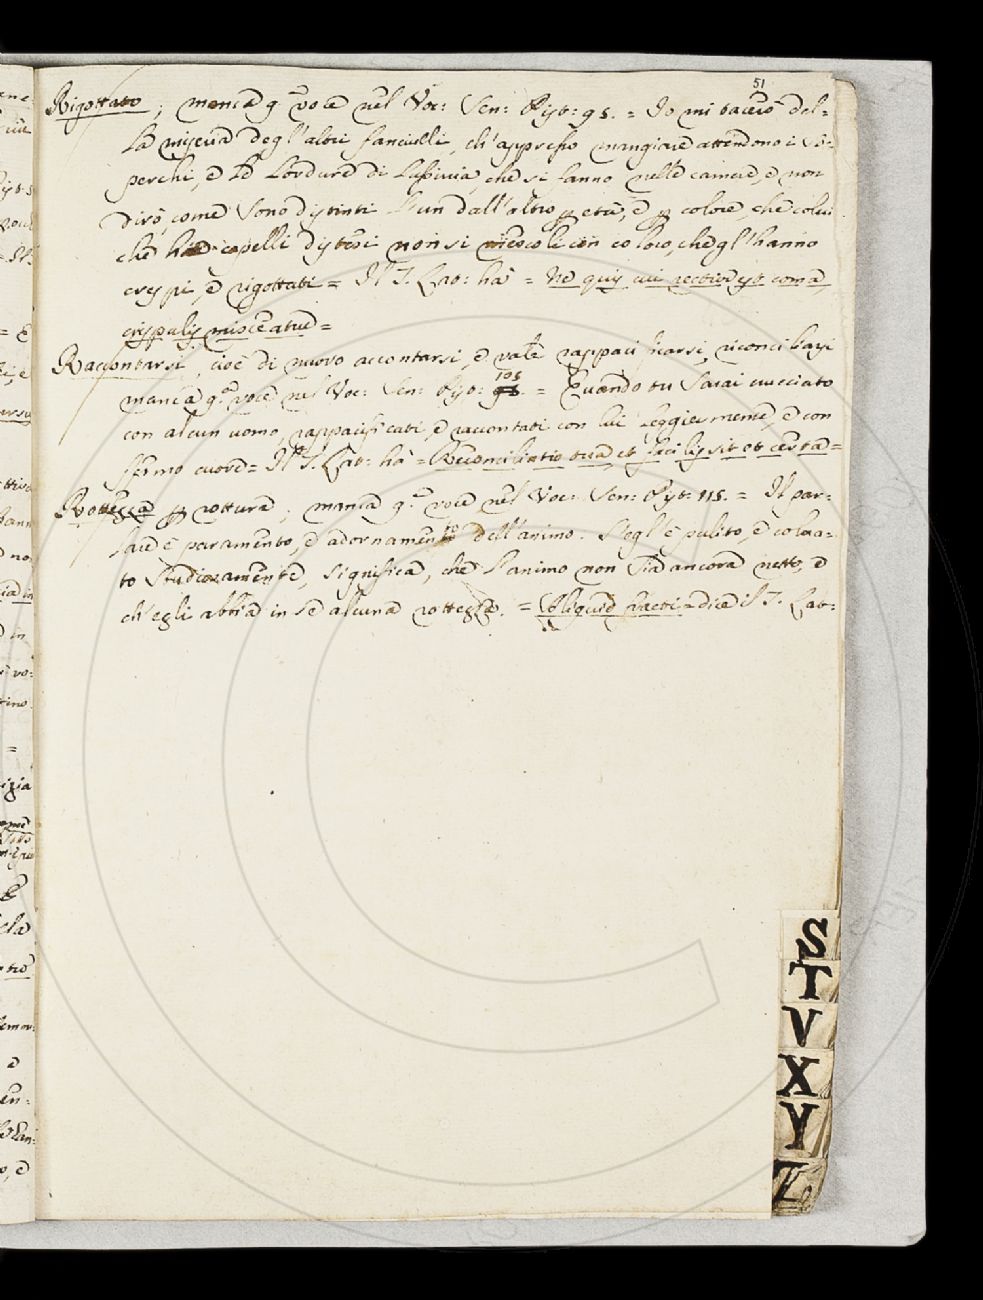 51
Rigottato; manca q.a voce nel Voc: Sen: Pist: 95. = Io mi tacerò del=
la miseria degl'altri fanciulli, ch'appresso mangiare attendono i So=
perchi, e le Lordure di Lussuria, che si fanno nelle camere, e non
dirò, come Sono distinti l'un dall'altro p età, e p colore, che colui
che ha capelli distesi non si mescoli con coloro, che gl'hanno
crespi, e rigottati = Il T. Lat: ha = Ne quis cui rectior est coma,
crispulis misceatur=
Raccontarsi, cioè di nuovo accontarsi, e vale rappacificarsi, riconciliarsi
manca q.a voce nel Voc: Sen: Pist: 105 = Quando tu Sarai crucciato
con alcun uomo, rappacificati, e raccontati con lui leggiermente, e con
fermo cuore= Il T. Lat: ha = Reconciliatio tua, et facilis sit et certa=
Rottezza p rottura; manca q.a voce nel Voc: Sen: Pist: 115. = Il par=
lare è paramento, e adornamento dell'animo. Segl'è pulito, e colora=
to Studiosamente, significa, che l'animo non Sia ancora netto, e
ch'egli abbia in Se alcuna rottezza. = Aliquid fracti = dice il T. Lat:
S
T
V
X
Y
Z